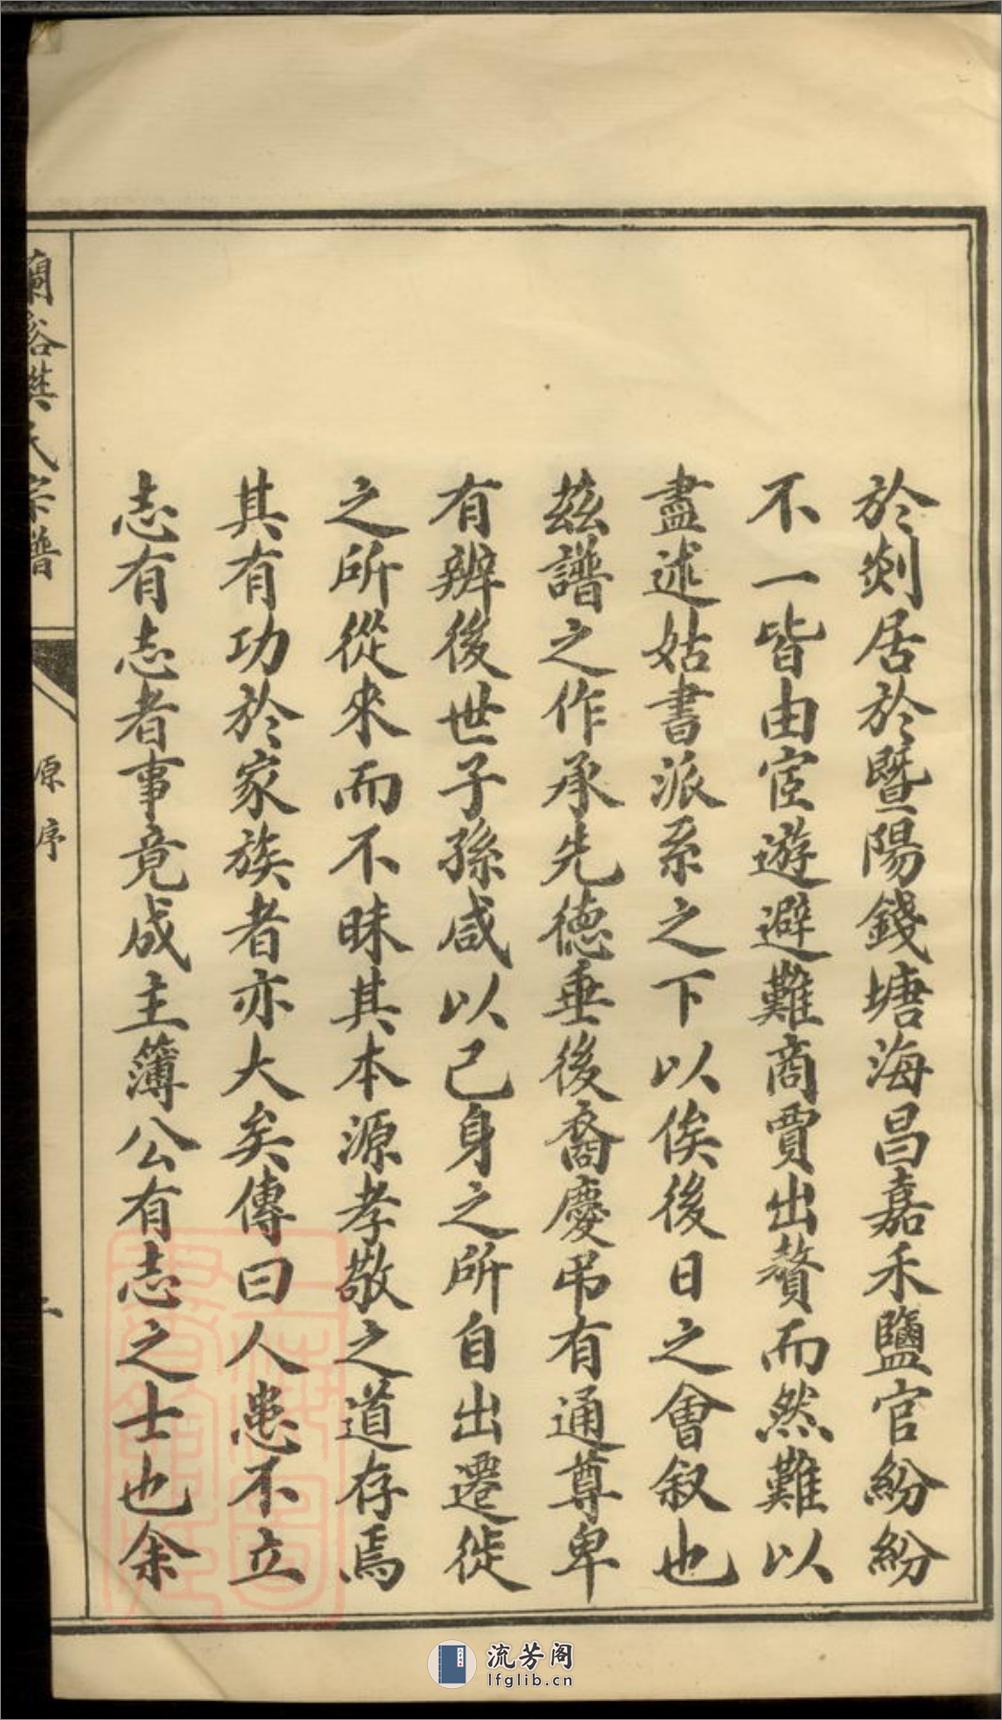 於剡居於暨陽錢塘海昌嘉禾鹽官紛紛
不一皆由宦遊避難商賈出贅而然難以
盡述姑書派系之下以俟後日之會叙也
茲譜之作承先德垂後裔慶弔有通尊卑
有辨後世子孫咸以己身之所自出遷徙
之所從來而不昧其本源孝敬之道存焉
其有功於家族者亦大矣傳曰人患不立
志有志者事竟成主簿公有志之士也余
蘭谿樊氏宗譜
原序
二
流芳阁
lfglib.cn